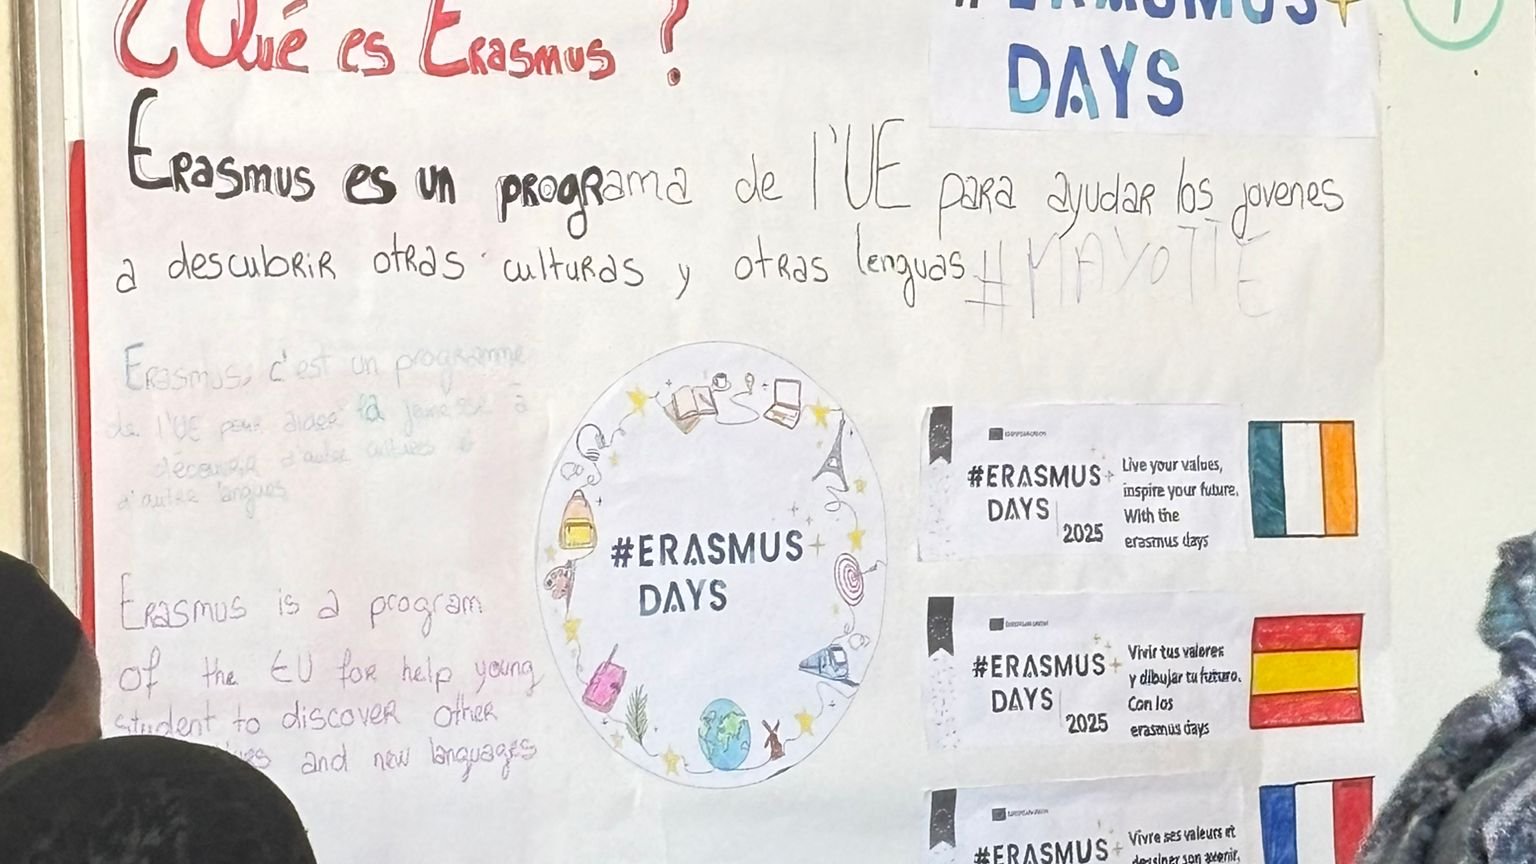 ¿Qué es Erasmus ?
#ERASMUS+
DAYS
Erasmus es un programa de l'UE para ayudar los jovenes
a descubrir otras culturas y otras lenguas
#MAYOTTE
Erasmus, c'est un programme
de l'UE pour aider la jeunesse à
découvrir d'autre cultures
d'autre langues
Erasmus is a program
of the EU for help young
student to discover other
and new languages
#ERASMUS+
DAYS
#ERASMUS+
DAYS
2025
Live your values,
inspire your future.
With the
erasmus days
#ERASMUS+
DAYS
2025
Vivir tus valores
y dibujar tu futuro.
Con los
erasmus days
#ERASMUS+
Vivre ses valeurs et
dessiner son avenir.